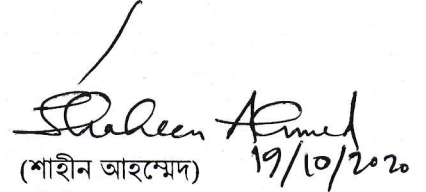 Shaheen Ahmed
(শাহীন আহম্মেদ) 19/10/2020